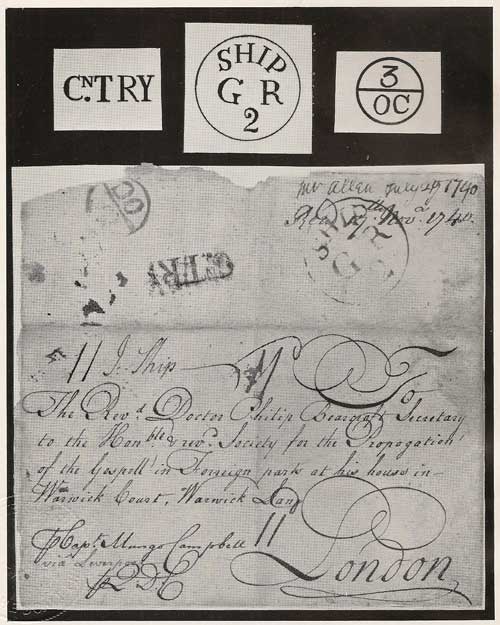 CN. TRY
SHIP
G R
2
3
OC
OC
CN. TRY
SHIP
G R
Mr Allen July 29 1740
Novr. 1740
11 J. Ship 11
To
The Revd. Doctor Philip Bearcroft Secretary
to the Honble & revd. Society for the Propogation
of the Gospell in Forreign parts at his house in
Warwick Court, Warwick Lane
11
London
Capt. Mungo Campbell
via Liverpool
QDC